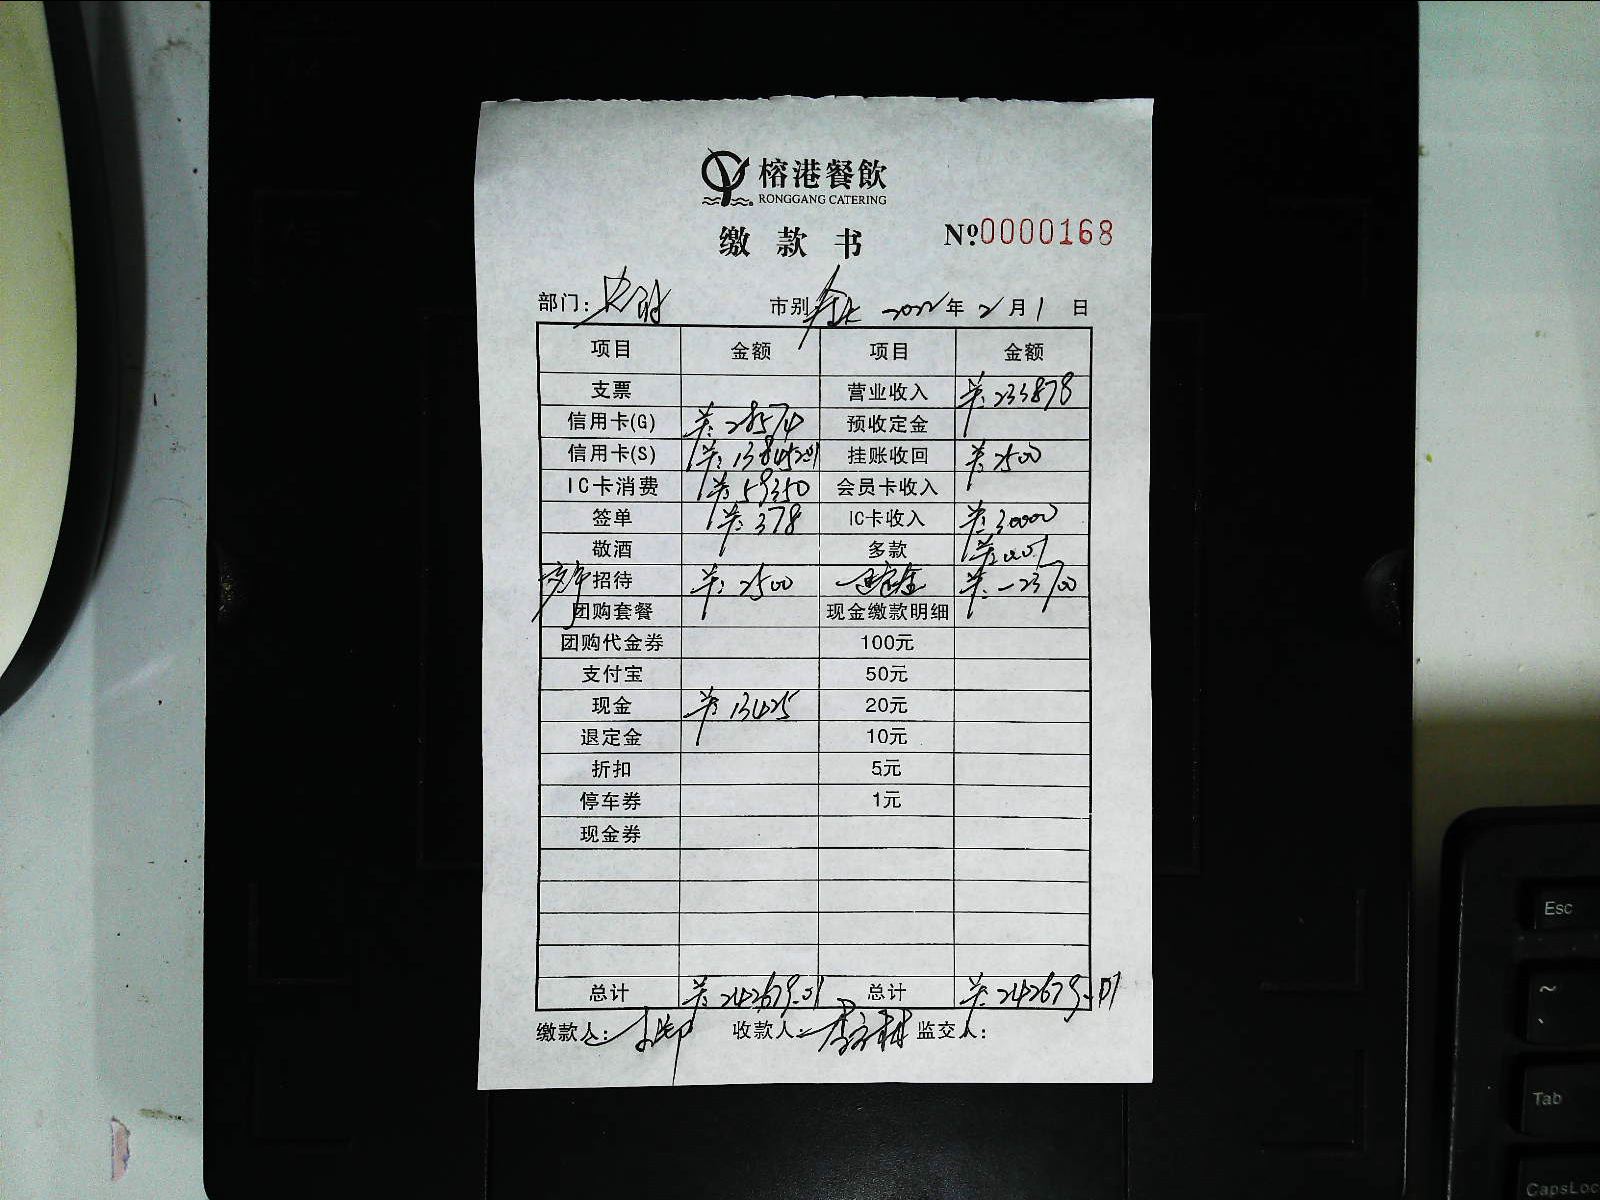 榕港餐飲
RONGGANG CATERING
缴款书 №0000168
部门： 市别 2022年2月1日
项目 金额 项目 金额
支票 营业收入 羊:233878
信用卡(G) 羊:28574 预收定金
信用卡(S) 羊:138452.01 挂账收回 羊:2500
IC卡消费 羊:59350 会员卡收入
签单 羊:378 IC卡收入 羊:30000
敬酒 多款 羊:0.01
招待 羊:2500 退定金 羊:-23700
团购套餐 现金缴款明细
团购代金券 100元
支付宝 50元
现金 羊:13425 20元
退定金 10元
折扣 5元
停车券 1元
现金券
总计 羊:242679.01 总计 羊:242679.01
缴款人： 收款人： 监交人：